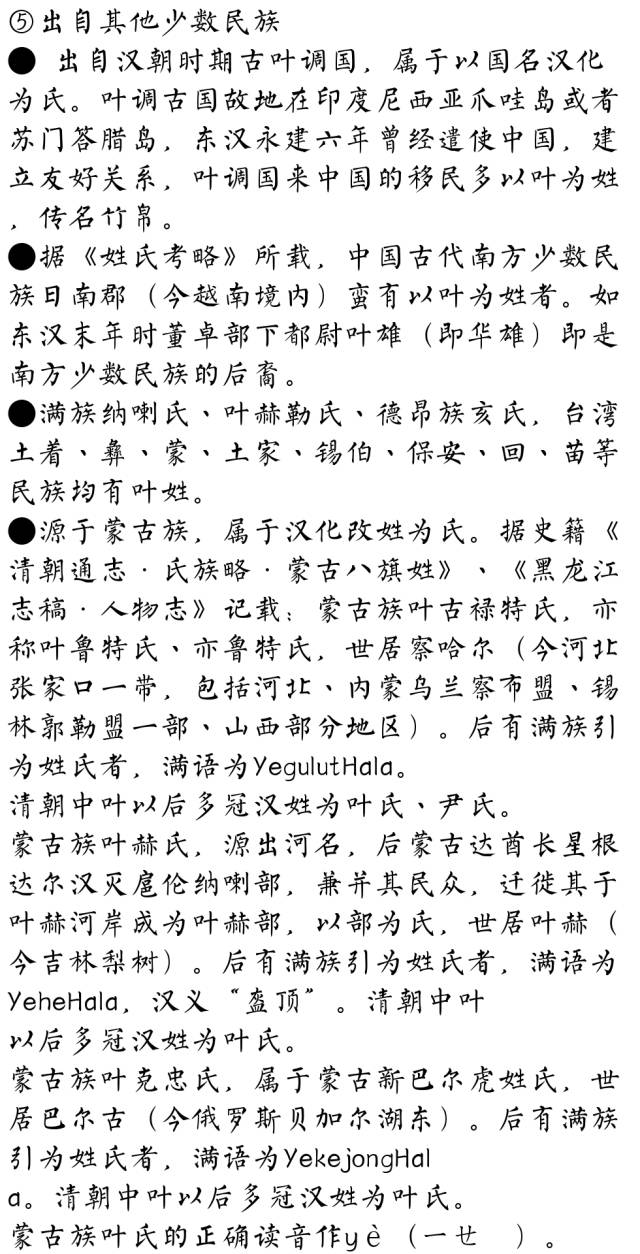 ⑤出自其他少数民族
● 出自汉朝时期古叶调国，属于以国名汉化
为氏。叶调古国故地在印度尼西亚爪哇岛或者
苏门答腊岛，东汉永建六年曾经遣使中国，建
立友好关系，叶调国来中国的移民多以叶为姓
，传名竹帛。
●据《姓氏考略》所载，中国古代南方少数民
族日南郡（今越南境内）蛮有以叶为姓者。如
东汉末年时董卓部下都尉叶雄（即华雄）即是
南方少数民族的后裔。
●满族纳喇氏、叶赫勒氏、德昂族亥氏，台湾
土着、彝、蒙、土家、锡伯、保安、回、苗等
民族均有叶姓。
●源于蒙古族，属于汉化改姓为氏。据史籍《
清朝通志·氏族略·蒙古八旗姓》、《黑龙江
志稿·人物志》记载：蒙古族叶古禄特氏，亦
称叶鲁特氏、亦鲁特氏，世居察哈尔（今河北
张家口一带，包括河北、内蒙乌兰察布盟、锡
林郭勒盟一部、山西部分地区）。后有满族引
为姓氏者，满语为YegulutHala。
清朝中叶以后多冠汉姓为叶氏、尹氏。
蒙古族叶赫氏，源出河名，后蒙古达酋长星根
达尔汉灭扈伦纳喇部，兼并其民众，迁徙其于
叶赫河岸成为叶赫部，以部为氏，世居叶赫（
今吉林梨树）。后有满族引为姓氏者，满语为
YeheHala，汉义“盔顶”。清朝中叶
以后多冠汉姓为叶氏。
蒙古族叶克忠氏，属于蒙古新巴尔虎姓氏，世
居巴尔古（今俄罗斯贝加尔湖东）。后有满族
引为姓氏者，满语为YekejongHal
a。清朝中叶以后多冠汉姓为叶氏。
蒙古族叶氏的正确读音作yè（一ㄝ　）。